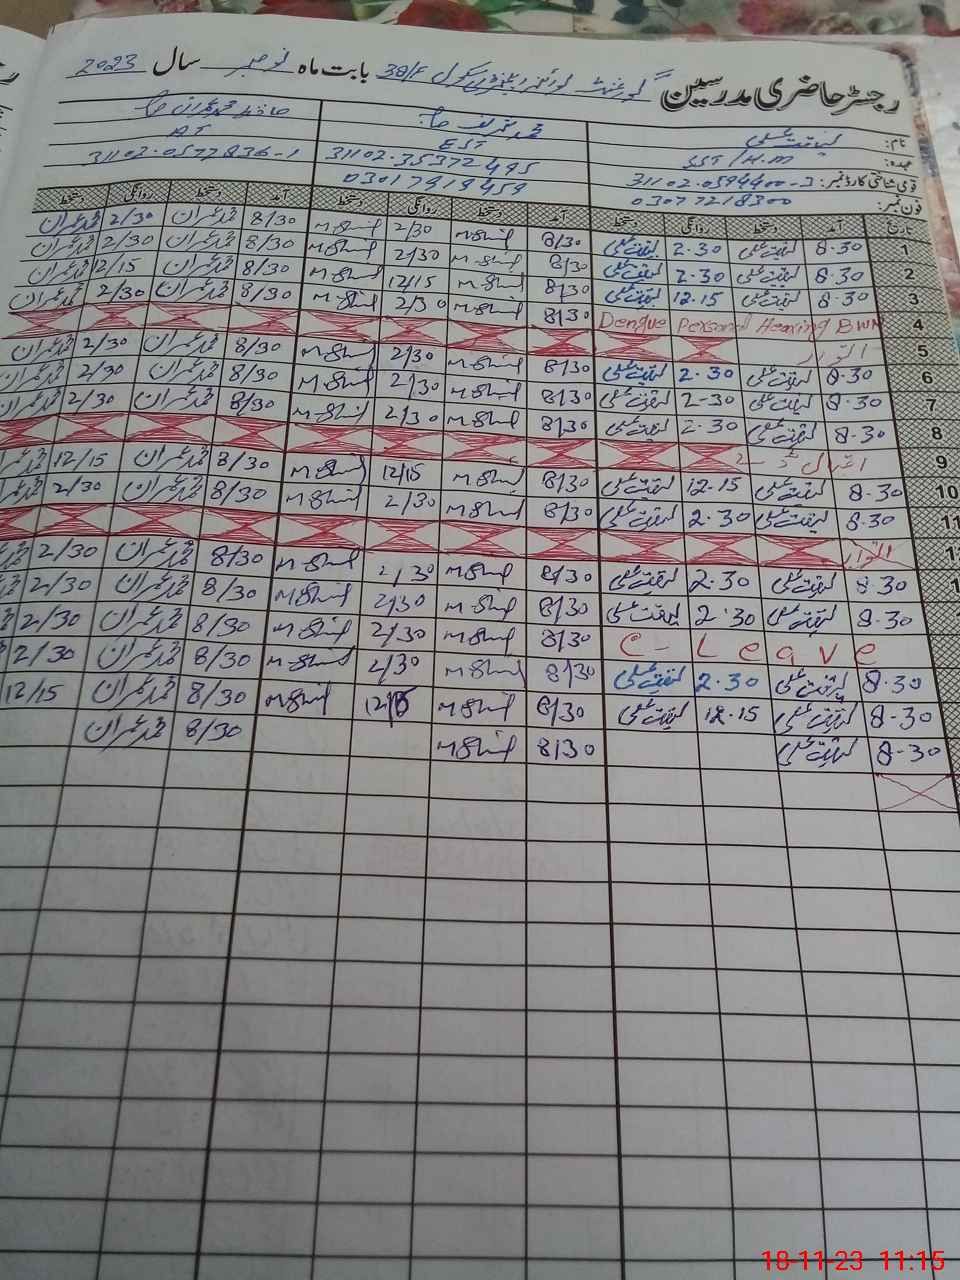 رجسٹر حاضری مدرسین گورنمنٹ بوائز ایلیمنٹری سکول 38/F بابت ماہ نومبر سال 2023
نام: لیاقت علی محمد شریف صاحب حافظ محمد عمران صاحب
عہدہ: SST/H.M EST AT
قومی شناختی کارڈ نمبر: 31102.0594400-3 31102.35372495 31102.0577836-1
فون نمبر: 03077218300 03017919459
تاریخ آمد دستخط روانگی دستخط آمد دستخط روانگی دستخط آمد دستخط روانگی دستخط
1 8.30 لیاقت علی 2.30 لیاقت علی 8/30 2/30 8/30 محمد عمران 2/30 محمد عمران
2 8.30 لیاقت علی 2.30 لیاقت علی 8/30 2/30 8/30 محمد عمران 2/30 محمد عمران
3 8.30 لیاقت علی 12.15 لیاقت علی 8/30 12/15 8/30 محمد عمران 12/15 محمد عمران
4 Dengue Personal Hearing BWN 8/30 2/30 8/30 محمد عمران 2/30 محمد عمران
5 اتوار
6 8.30 لیاقت علی 2.30 لیاقت علی 8/30 2/30 8/30 محمد عمران 2/30 محمد عمران
7 8.30 لیاقت علی 2-30 لیاقت علی 8/30 2/30 8/30 محمد عمران 2/30 محمد عمران
8 8.30 لیاقت علی 2.30 لیاقت علی 8/30 2/30 8/30 محمد عمران 2/30 محمد عمران
9 اقبال ڈے
10 8.30 لیاقت علی 12.15 لیاقت علی 8/30 12/15 8/30 محمد عمران 12/15
11 8.30 لیاقت علی 2.30 لیاقت علی 8/30 2/30 8/30 محمد عمران 2/30
اتوار
8.30 لیاقت علی 2.30 لیاقت علی 8/30 2/30 8/30 محمد عمران 2/30
8.30 لیاقت علی 2.30 لیاقت علی 8/30 2/30 8/30 محمد عمران 2/30
C-Leave 8/30 2/30 8/30 محمد عمران 2/30
8.30 لیاقت علی 2.30 لیاقت علی 8/30 2/30 8/30 محمد عمران 2/30
8.30 لیاقت علی 12.15 لیاقت علی 8/30 8/30 محمد عمران 12/15
8.30 لیاقت علی 8/30 8/30 محمد عمران
18-11-23 11:15